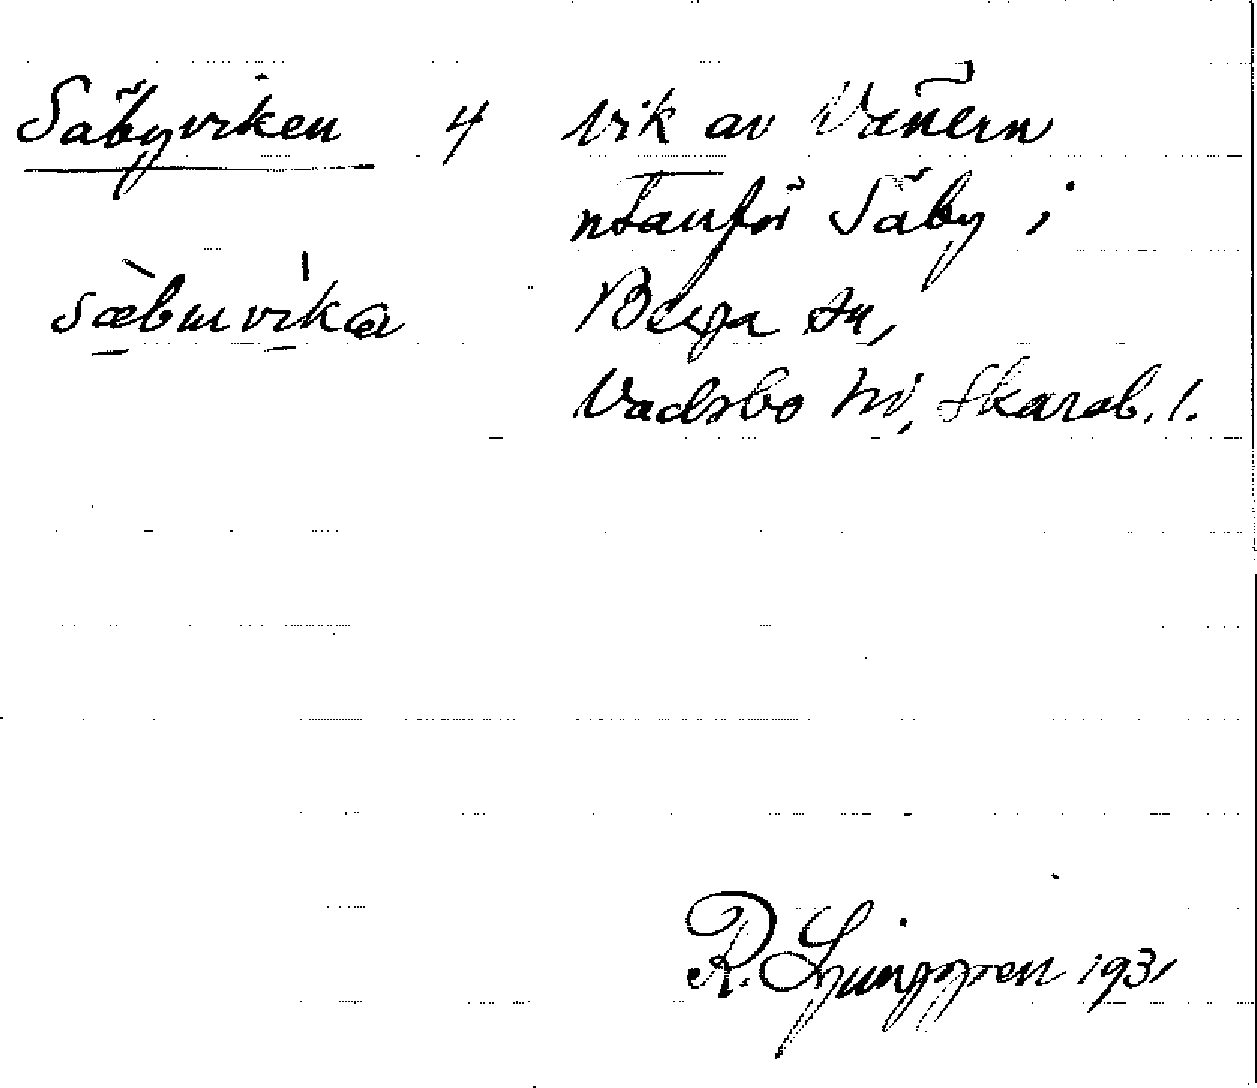 Säbyviken 4 Vik av Vänern
utanför Säby i
sæbyvika Berga sn,
Vadsbo hd, Skarab. l.
R. Ljunggren 1931